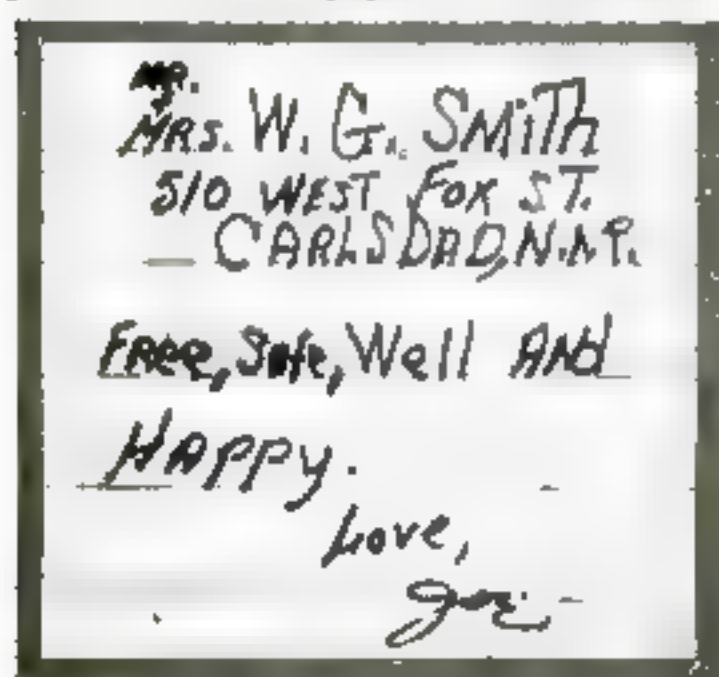 MR.
MRS. W. G. SMITH
510 WEST FOX ST.
CARLSBAD, N.M.
FREE, Safe, Well AND
HAPPY.
Love,
Joe